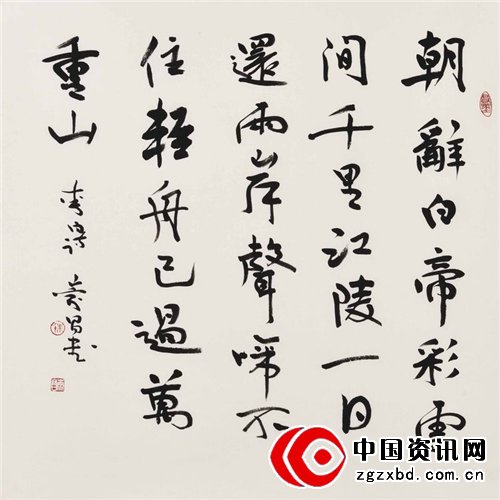 朝辭白帝彩雲
間千里江陵一日
還兩岸聲啼不
住輕舟已過萬
重山
中国资讯网
zgzxbd.com.cn